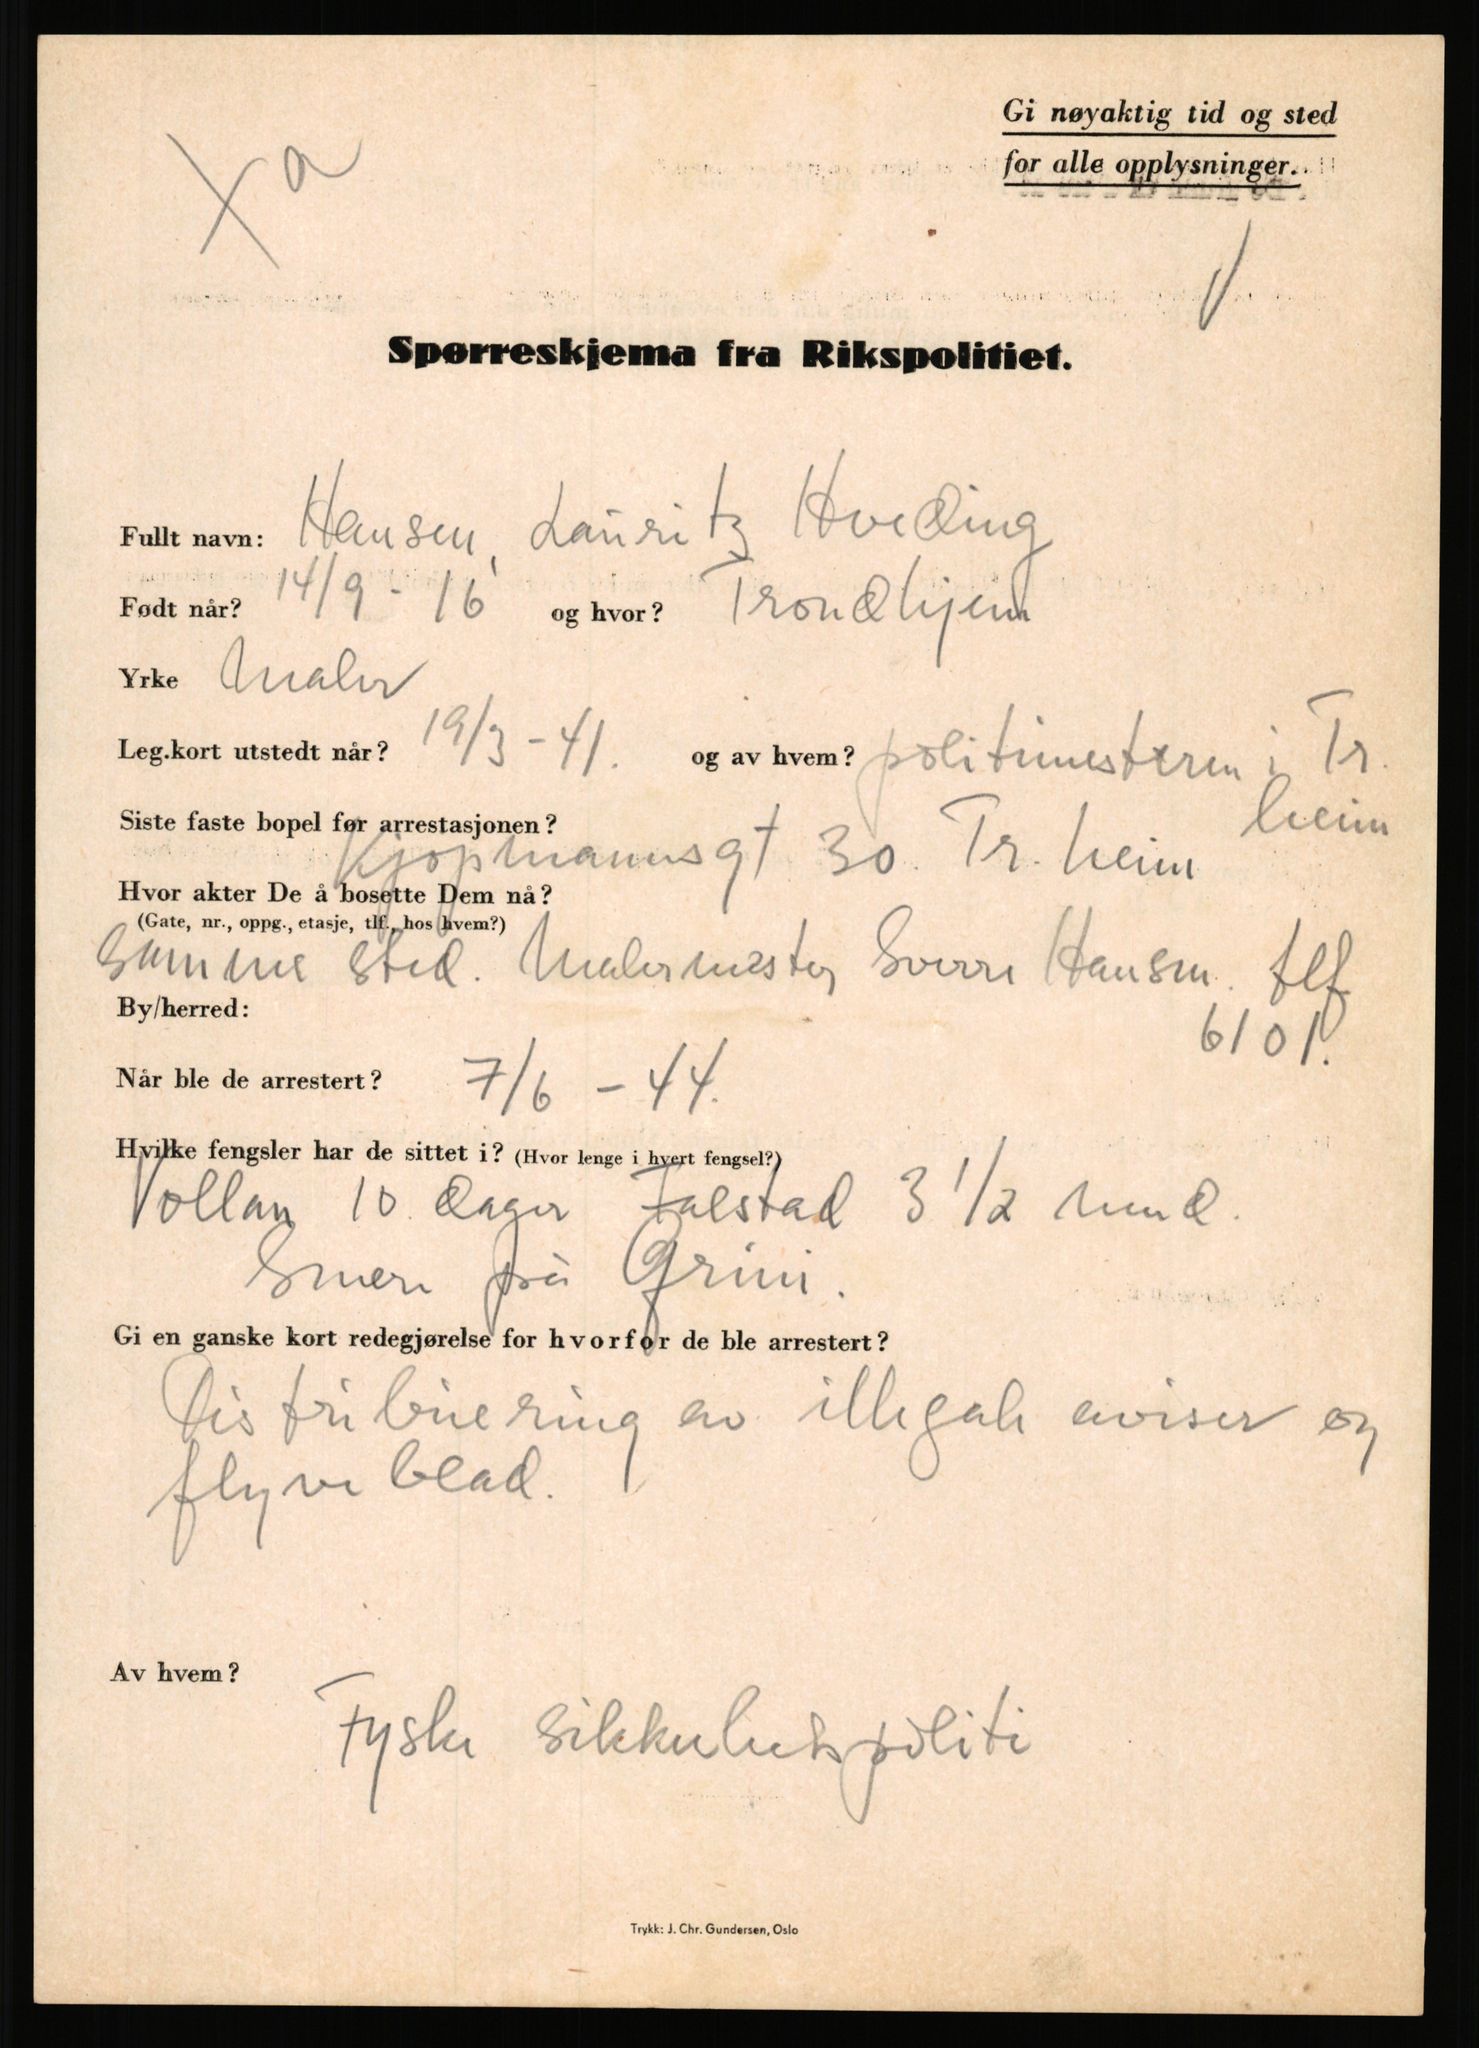 Gi nøyaktig tid og sted
for alle opplysninger.
X a
Spørreskjema fra Rikspolitiet.
Fullt navn: Hansen, Lauritz Hveding
Født når? 14/9 - 16 og hvor? Trondhjem
Yrke Maler
Leg.kort utstedt når? 19/3 - 41. og av hvem? politimesteren i Tr.
heim
Siste faste bopel før arrestasjonen?
Kjøpmannsgt 30. Tr. heim
Hvor akter De å bosette Dem nå?
(Gate, nr., oppg., etasje, tlf., hos hvem?)
Samme sted. Malermester Sverre Hansen. tlf
6101.
By/herred:
Når ble de arrestert? 7/6 - 44.
Hvilke fengsler har de sittet i? (Hvor lenge i hvert fengsel?)
Vollan 10 dager Falstad 3 1/2 mnd.
Siden på Grini.
Gi en ganske kort redegjørelse for hvorfor de ble arrestert?
Distribuering av illegale aviser og
flyveblad.
Av hvem?
Tyske sikkerhetspoliti
Trykk: J. Chr. Gundersen, Oslo